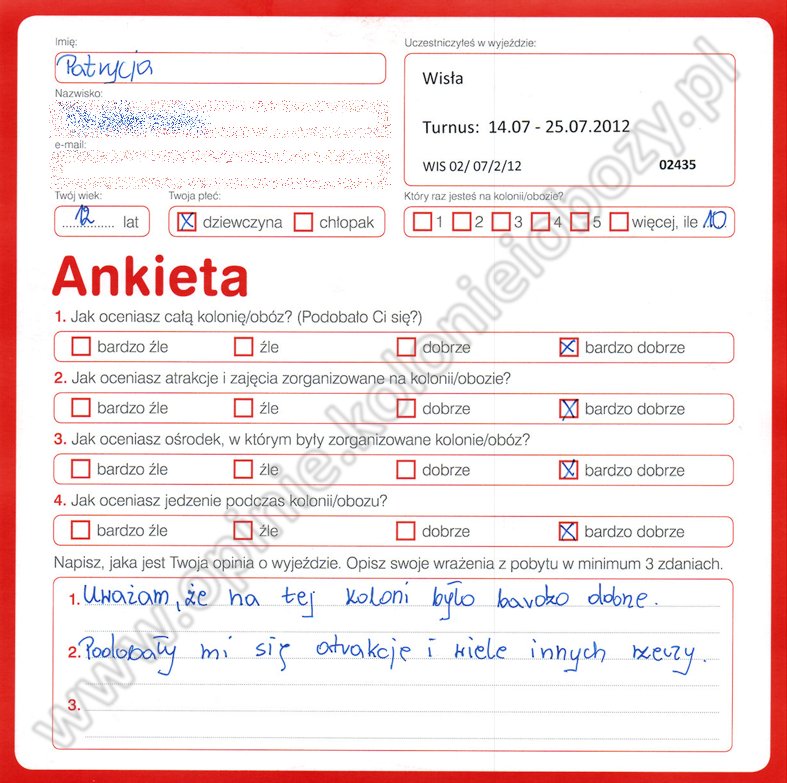 Imię:
Patrycja
Uczestniczyłeś w wyjeździe:
Wisła
Turnus: 14.07 - 25.07.2012
WIS 02/ 07/2/12 02435
Nazwisko:
e-mail:
Twój wiek:
12 lat
Twoja płeć:
dziewczyna chłopak
Który raz jesteś na kolonii/obozie?
1 2 3 4 5 więcej, ile 10
Ankieta
1. Jak oceniasz całą kolonię/obóz? (Podobało Ci się?)
bardzo źle źle dobrze bardzo dobrze
2. Jak oceniasz atrakcje i zajęcia zorganizowane na kolonii/obozie?
bardzo źle źle dobrze bardzo dobrze
3. Jak oceniasz ośrodek, w którym były zorganizowane kolonie/obóz?
bardzo źle źle dobrze bardzo dobrze
4. Jak oceniasz jedzenie podczas kolonii/obozu?
bardzo źle źle dobrze bardzo dobrze
Napisz, jaka jest Twoja opinia o wyjeździe. Opisz swoje wrażenia z pobytu w minimum 3 zdaniach.
1. Uważam, że na tej koloni było bardzo dobrze.
2. Podobały mi się atrakcje i wiele innych rzeczy.
3.
www.opinie.kolonieiobozy.pl